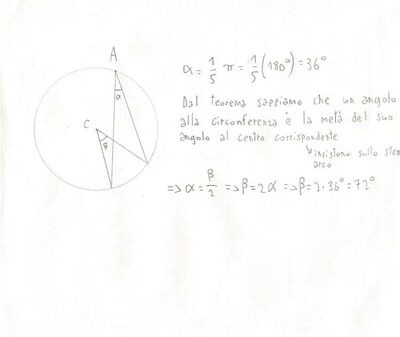 A
α
C
β
α = 1/5 π = 1/5 (180°) = 36°
Dal teorema sappiamo che un angolo
alla circonferenza è la metà del suo
angolo al centro corrispondente
insistono sullo stem
arco
=> α = β/2 => β = 2α => β = 2·36° = 72°